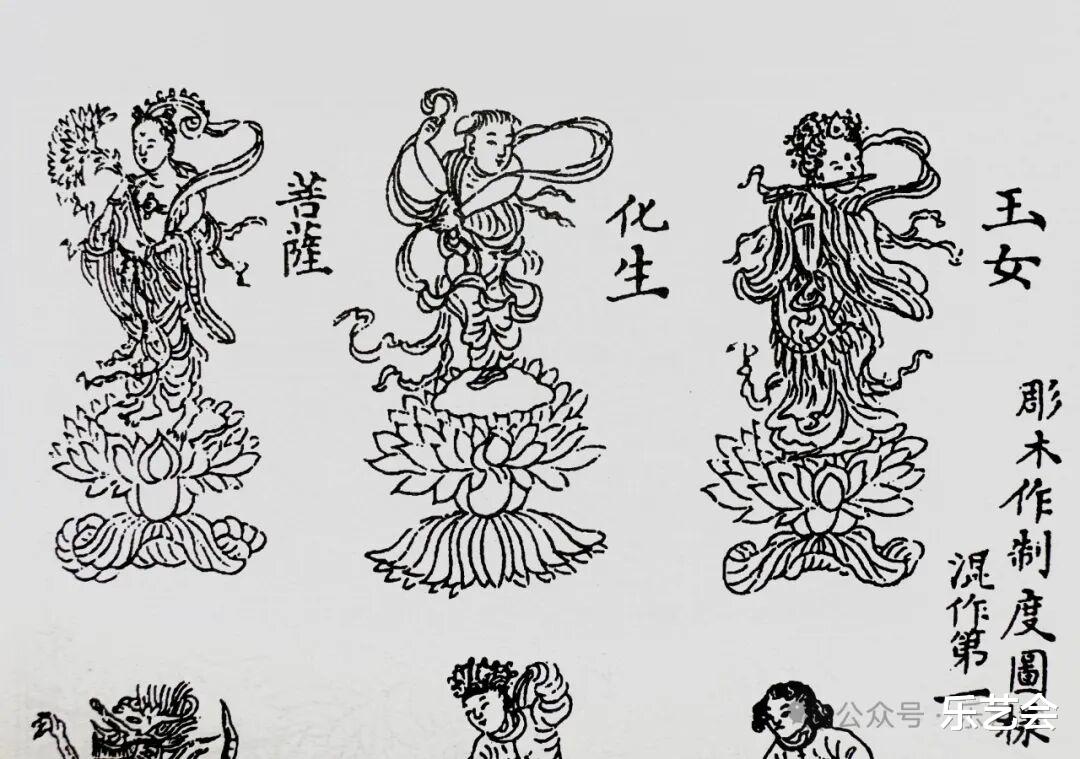 彫木作制度圖樣
混作第一
王女
化生
菩薩
公众号·乐艺会